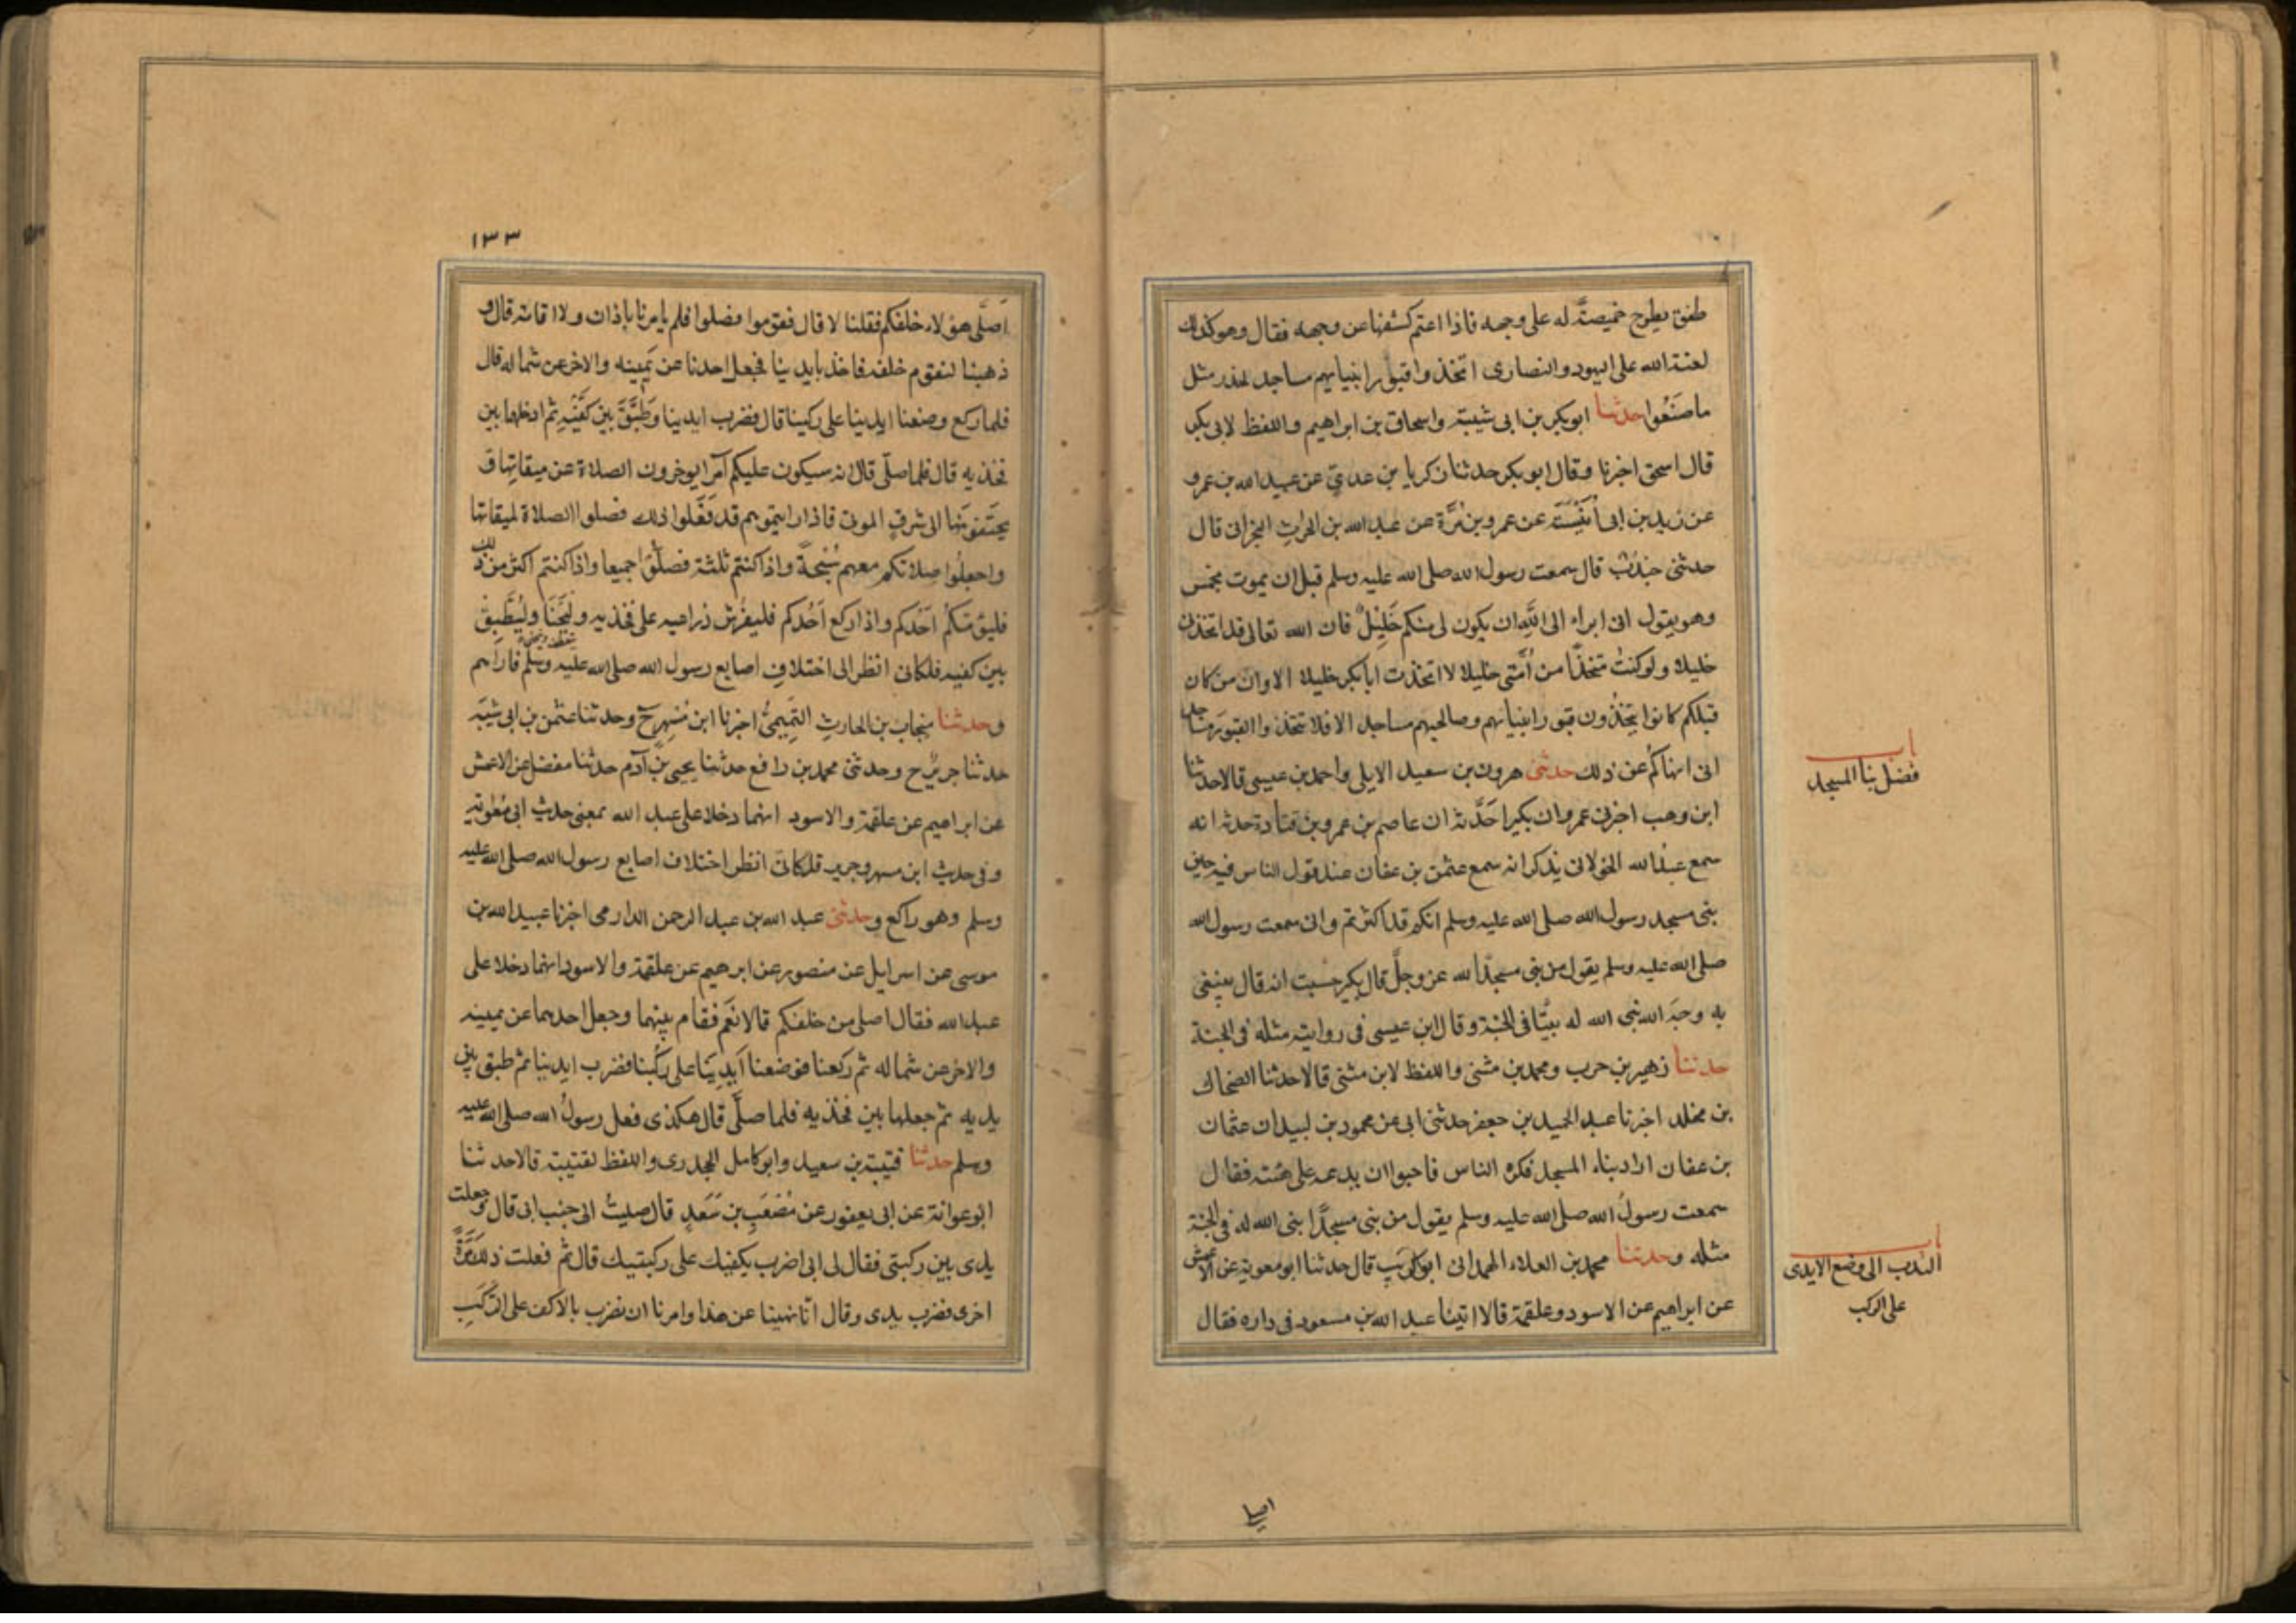 طفق يطرح خميصة له على وجهه فاذا اعتم كشفها عن وجهه فقال وهو كذلك
لعنة الله على اليهود والنصارى اتخذوا قبور انبيائهم مساجد يحذر مثل
ما صنعوا حدثنا ابو بكر بن ابى شيبة واسحاق بن ابراهيم واللفظ لابى بكر
قال اسحق اخبرنا وقال ابو بكر حدثنا زكريا بن عدي عن عبيد الله بن عمرو
عن زيد بن ابى أنيسة عن عمرو بن مُرَّة عن عبد الله بن الحارث النجرانى قال
حدثنى جندُب قال سمعت رسول الله صلى الله عليه وسلم قبل ان يموت بخمس
وهو يقول انى ابراء الى الله ان يكون لى منكم خَليلٌ فان الله تعالى قد اتخذنى
خليلا ولو كنتُ متخذًا من اُمَّتى خليلا لاتخذت ابا بكر خليلا الا وان من كان
قبلكم كانوا يتخذون قبور انبيائهم وصالحيهم مساجد الا فلا تتخذوا القبور مساجد
انى انهاكُم عن ذلك حدثنى هرون بن سعيد الايلى واحمد بن عيسى قالا حدثنا
ابن وهب اخبرنى عمرو ان بكيرا حَدَّثه ان عاصم بن عمرو بن قتادة حدثه انه
سمع عبيدُالله الخولانى يذكر انه سمع عثمن بن عفان عند قول الناس فيه حين
بنى مسجد رسول الله صلى الله عليه وسلم انكم قد اكثرتم وانى سمعت رسول الله
صلى الله عليه وسلم يقول من بنى مسجدًا لله عز وجلَّ قال بكير حسبت انه قال يبتغى
به وجهَ الله بنى الله له بيتًا فى الجنة وقال ابن عيسى فى روايته مثله فى الجنة
حدثنا زهير بن حرب ومحمد بن مثنى واللفظ لابن مثنى قالا حدثنا الضحاك
بن مخلد اخبرنا عبد الحميد بن جعفر حدثنى ابى عن محمود بن لبيد ان عثمان
بن عفان اراد بناء المسجد فكره الناس فاحبوا ان يدعه على هيئته فقال
سمعت رسولَ الله صلى الله عليه وسلم يقول من بنى مسجدًا بنى الله له فى الجنة
مثله وحدثنا محمد بن العلاء الهمدانى ابو كريب قال حدثنا ابو معوية عن الاعمش
عن ابراهيم عن الاسود وعلقمة قالا اتينا عبد الله بن مسعود فى داره فقال
باب
فضل بنا المسجد
باب
الندب الى وضع الايدى
على الركب
اصلى
١٣٣
اَصلَّى هؤلاء خلفكم فقلنا لا قال فقوموا فصلوا فلم يامرنا باذان ولا اقامة قال و
ذهبنا لنقوم خلفه فاخذ بايدينا فجعل احدنا عن يَمينه والاخر عن شماله قال
فلما ركع وضعنا ايدينا على ركبنا قال فضرب ايدينا وَطَبَّقَ بين كَفَّيْهِ ثم ادخلها بين
فخذيه قال فلما صلّى قال انه سيكون عليكم اُمرا يوخرون الصلاة عن ميقاتها و
يخنقونها الى شرقِ الموتى فاذا رايتموهم قد فَعَلوا ذلك فصلوا الصلاة لميقاتها
واجعلُوا صلاتكم معهم سُبْحةً واذا كنتم ثلثة فصلّوا جميعا واذا كنتم اكثر من ذلك
فليؤمّكُم اَحَدكم واذا ركع اَحُدكم فليفرُش ذراعيه على فخذيه وليَحْنَا وليُطَبِّقْ
بين كفيه فلكانى انظر الى اختلافِ اصابع رسول الله صلى الله عليه وسلم فاراهم
وحدثنا منجاب بن الحارثِ التَّمِيمىُّ اخبرنا ابن مُسْهِر ح وحدثنا عثمن بن ابى شيبَه
حدثنا جريرٌ ح وحدثنى محمد بن رافع حدثنا يحيى بن آدم حدثنا مفضل عن الاعمش
عن ابراهيم عن علقمة والاسود انهما دخلا على عبد الله بمعنى حديث ابى معوية
وفى حديث ابن مسهر وجرير فلكانى انظر اختلاف اصابع رسول الله صلى الله عليه
وسلم وهو راكع وحدثنى عبد الله بن عبد الرحمن الدارمى اخبرنا عبيد الله بن
موسى عن اسرايل عن منصور عن ابرهيم عن علقمة والاسود انهما دخلا على
عبد الله فقال اصلى من خلفكم قالا نعَم فقام بينهما وجعل احدهما عن يمينه
والاخر عن شماله ثم ركعنا فوضعنا اَيدِيَنا على رُكبنا فضرب ايدينا ثم طبق بين
يديه ثم جعلها بين فخذيه فلما صلَّى قال هكذى فعل رسولُ الله صلى الله عليه
وسلم حدثنا قتيبة بن سعيد وابو كامل الجحدرى واللفظ لقتيبة قالا حدثنا
ابو عوانة عن ابى يعفور عن مُصْعَبِ بن سَعَدٍ قال صليتُ الى جنب ابى قال وجعلت
يدى بين ركبتى فقال لى ابى اضرب بكفيك على ركبتيك قال ثم فعلت ذلك مَرَّةً
اخرى فضرب يدى وقال انّا نهينا عن هذا وامرنا ان نضرب بالاكف على الرُّكَبِ